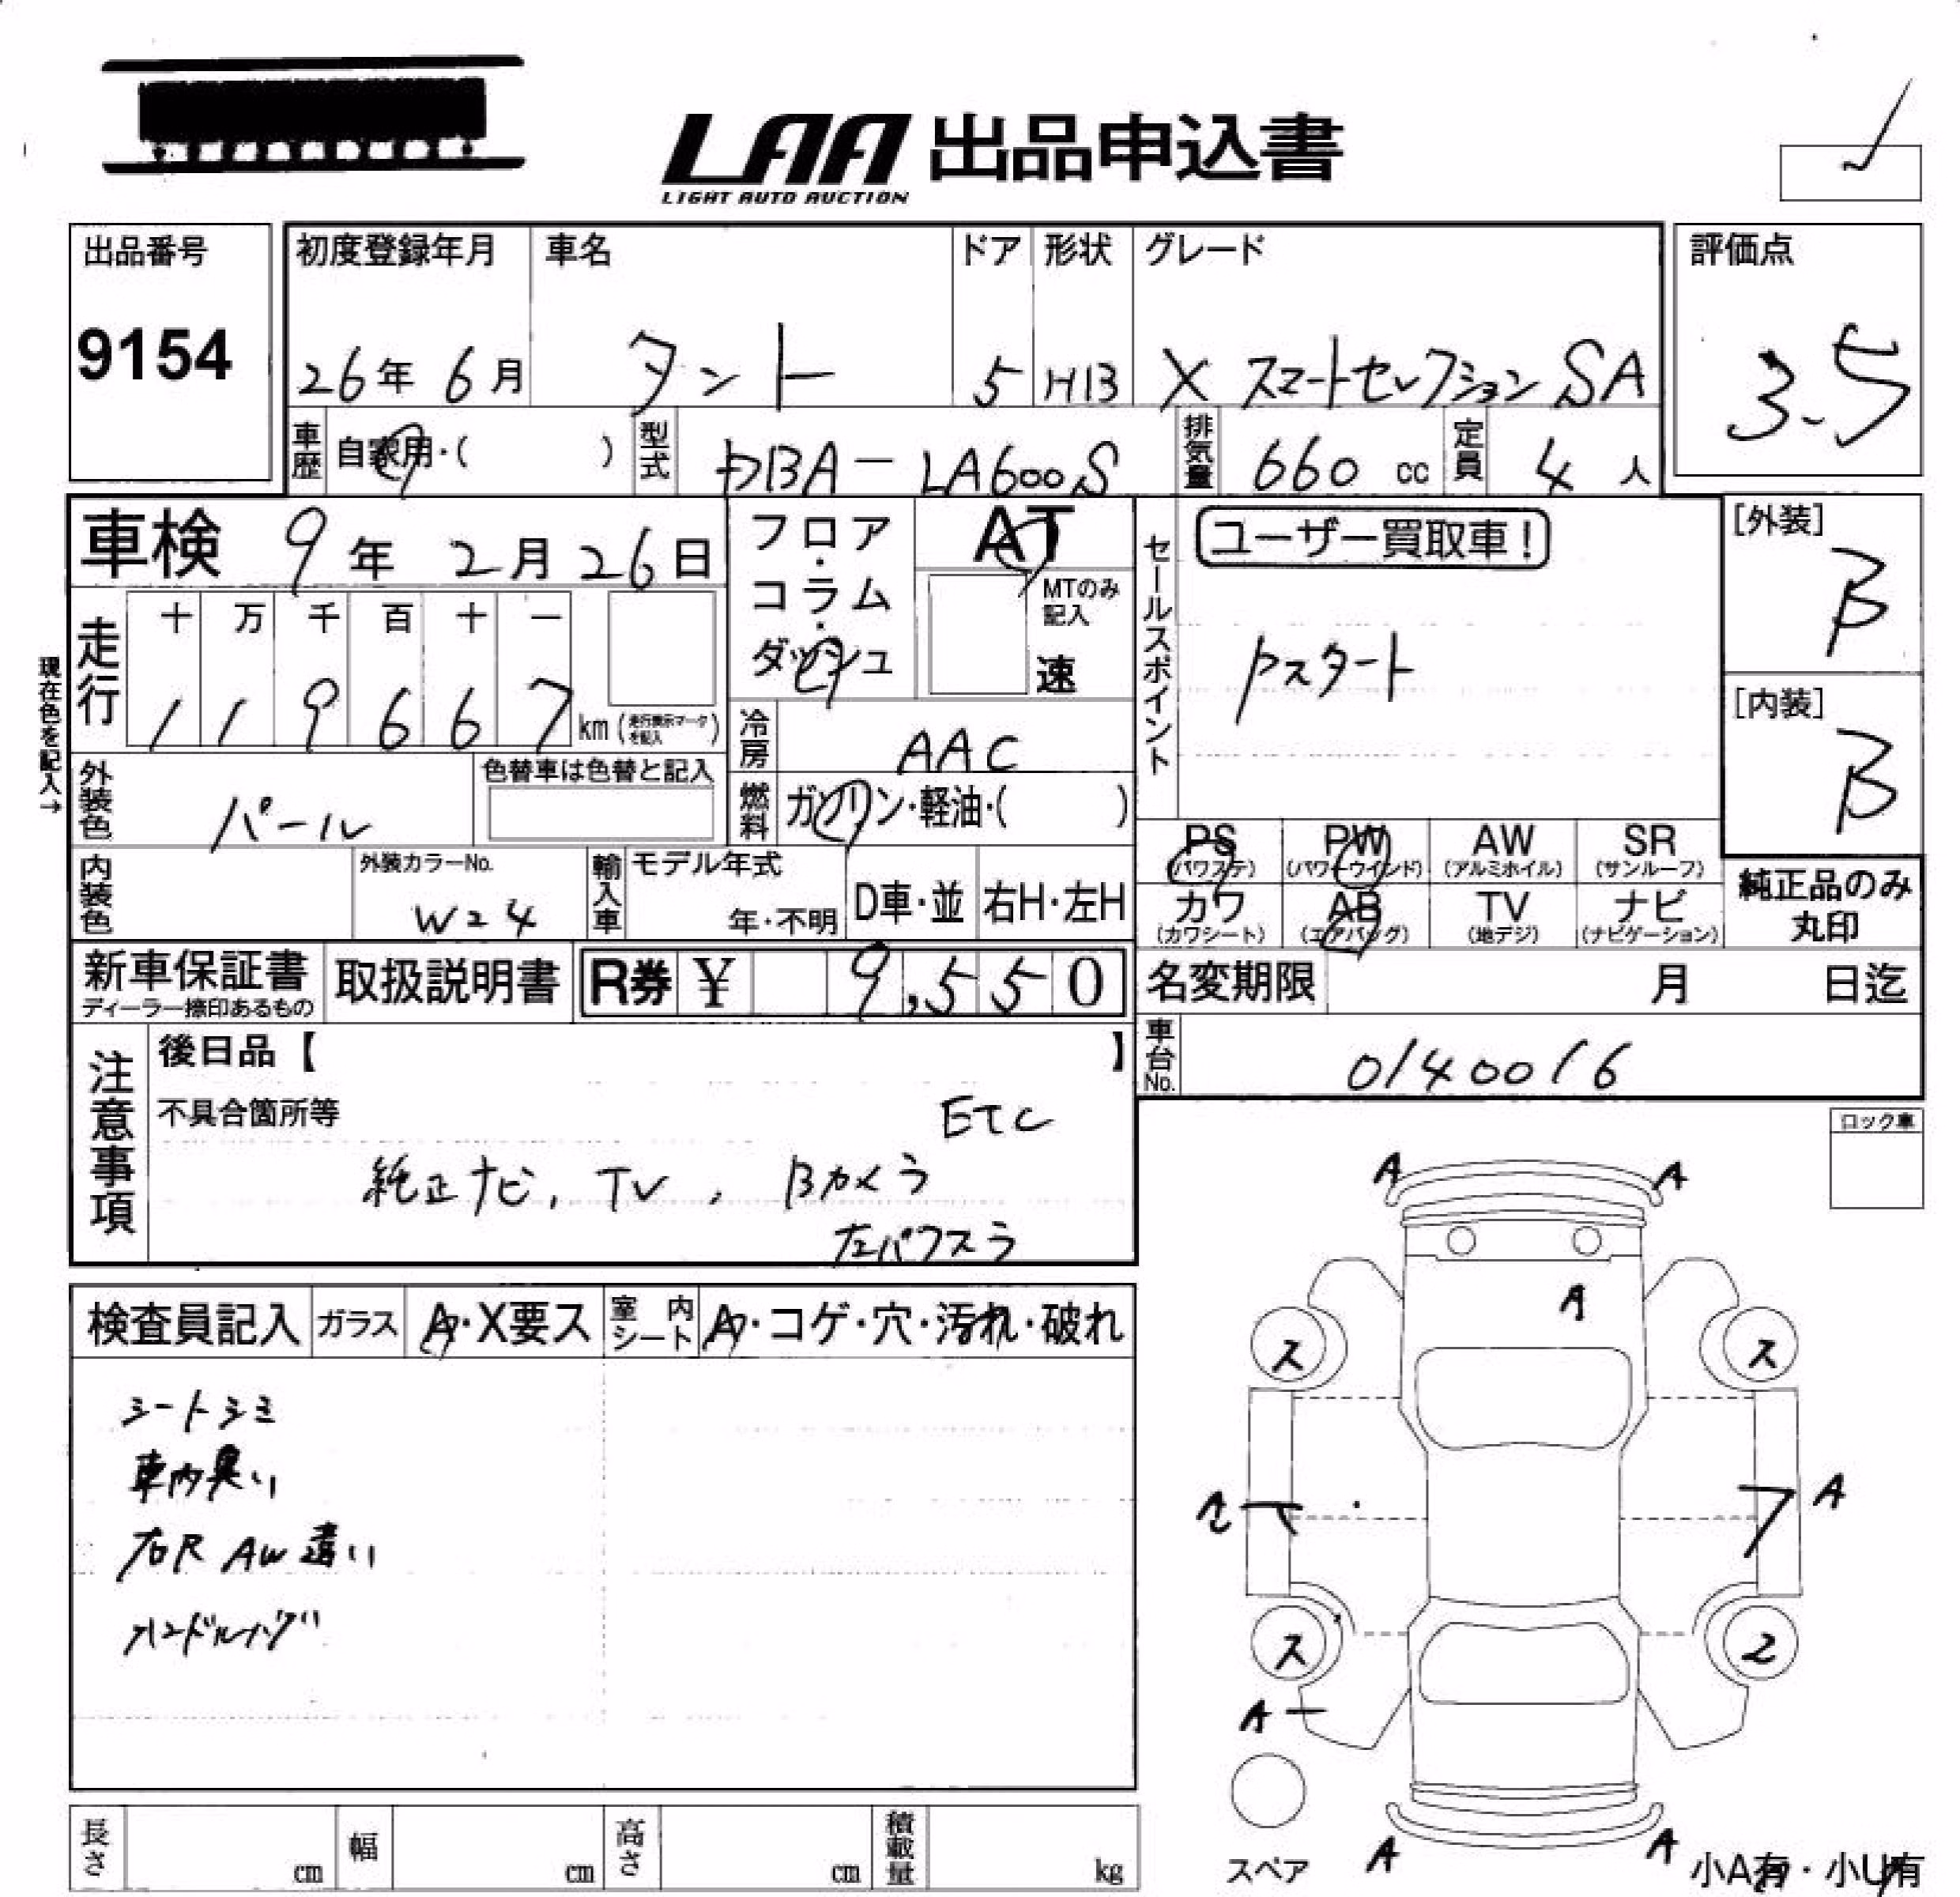 LAA 出品申込書
LIGHT AUTO AUCTION
出品番号
9154
初度登録年月
26年 6月
車名
タント
ドア
5
形状
HB
グレード
X スマートセレクション SA
評価点
3.5
車歴
自家用・( )
型式
DBA-LA600S
排気量
660 cc
定員
4 人
車検 9年 2月 26日
フロア・コラム・ダッシュ
AT
MTのみ記入
速
セールスポイント
ユーザー買取車!
Pスタート
[外装]
B
[内装]
B
現在色を記入→
走行
十 万 千 百 十 一
1 1 9 6 6 7 km (走行表示マークを記入)
冷房
AAC
外装色
パール
色替車は色替と記入
燃料
ガソリン・軽油・( )
PS (パワステ)
PW (パワーウインド)
AW (アルミホイル)
SR (サンルーフ)
カワ (カワシート)
AB (エアバッグ)
TV (地デジ)
ナビ (ナビゲーション)
純正品のみ丸印
内装色
外装カラーNo.
W24
輸入車
モデル年式
年・不明
D車・並
右H・左H
新車保証書
ディーラー捺印あるもの
取扱説明書
R券 ¥ 9,550
名変期限 月 日迄
車台No.
0140016
注意事項
後日品【 】
不具合箇所等
ETC
純正ナビ, TV, Bカメラ
左パワスラ
ロック車
検査員記入
ガラス
A・X要ス
室内シート
A・コゲ・穴・汚れ・破れ
シートシミ
車内臭い
右R AW違い
ハンドルハゲ
A A
A
ス ス
A
ス 2
A
A A
スペア
小A有・小U有
長さ cm
幅 cm
高さ cm
積載量 kg